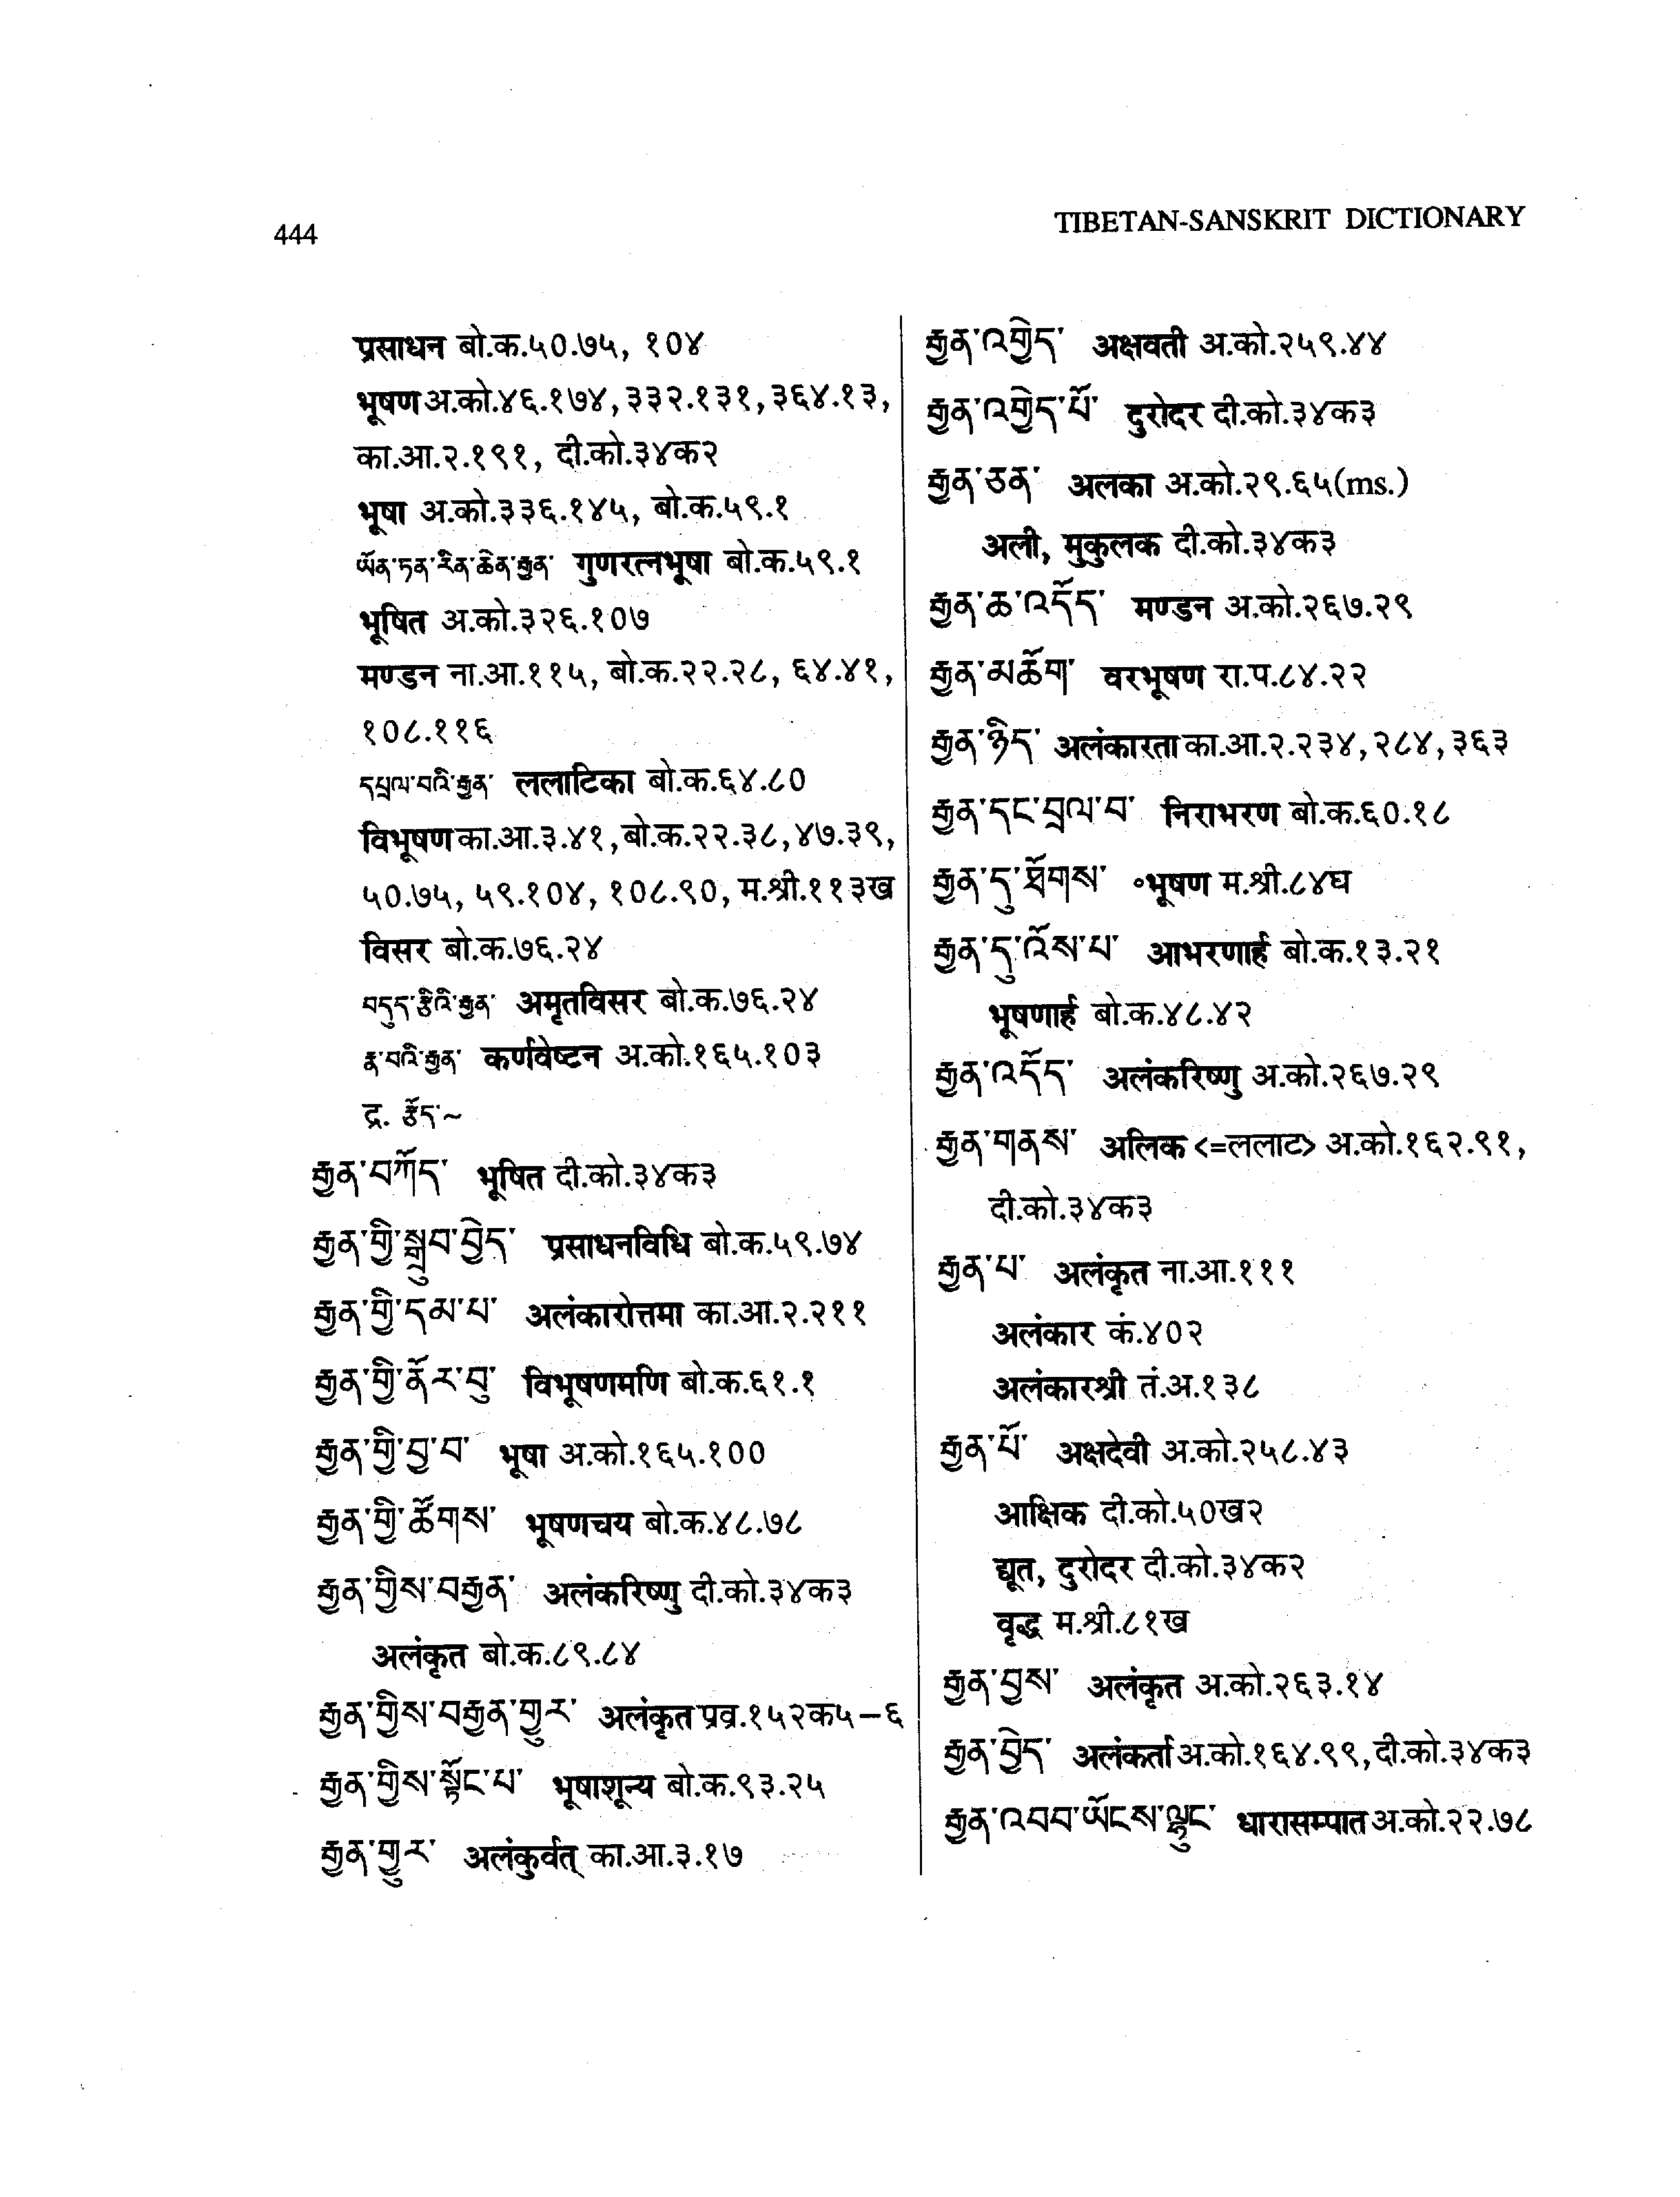 444
TIBETAN-SANSKRIT DICTIONARY
प्रसाधन बो.क.५0.७५, १0४
भूषण अ.को.४६.१७४, ३३२.१३१, ३६४.१३,
का.आ.२.१९१, दी.को.३४क२
भूषा अ.को.३३६.१४५, बो.क.५९.१
ཡོན་ཏན་རིན་ཆེན་རྒྱན་ गुणरत्नभूषा बो.क.५९.१
भूषित अ.को.३२६.१0७
मण्डन ना.आ.११५, बो.क.२२.२८, ६४.४१,
१0८.११६
དཔྲལ་བའི་རྒྱན་ ललाटिका बो.क.६४.८0
विभूषण का.आ.३.४१, बो.क.२२.३८, ४७.३९,
५0.७५, ५९.१0४, १0८.९0, म.श्री.११३ख
विसर बो.क.७६.२४
བདུད་རྩིའི་རྒྱན་ अमृतविसर बो.क.७६.२४
རྣ་བའི་རྒྱན་ कर्णवेष्टन अ.को.१६५.१0३
द्र. རྩོད་~
རྒྱན་བཀོད་ भूषित दी.को.३४क३
རྒྱན་གྱི་སྒྲུབ་བྱེད་ प्रसाधनविधि बो.क.५९.७४
རྒྱན་གྱི་དམ་པ་ अलंकारोत्तमा का.आ.२.२११
རྒྱན་གྱི་ནོར་བུ་ विभूषणमणि बो.क.६१.१
རྒྱན་གྱི་བྱ་བ་ भूषा अ.को.१६५.१00
རྒྱན་གྱི་ཚོགས་ भूषणचय बो.क.४८.७८
རྒྱན་གྱིས་བརྒྱན་ अलंकरिष्णु दी.को.३४क३
अलंकृत बो.क.८९.८४
རྒྱན་གྱིས་བརྒྱན་གྱུར་ अलंकृत प्रव्र.१५२क५–६
རྒྱན་གྱིས་སྟོང་པ་ भूषाशून्य बो.क.९३.२५
རྒྱན་གྱུར་ अलंकुर्वत् का.आ.३.१७
རྒྱན་འགྱེད་ अक्षवती अ.को.२५९.४४
རྒྱན་འགྱེད་པོ་ दुरोदर दी.को.३४क३
རྒྱན་ཅན་ अलका अ.को.२९.६५(ms.)
अली, मुकुलक दी.को.३४क३
རྒྱན་ཆ་འདོད་ मण्डन अ.को.२६७.२९
རྒྱན་མཆོག་ वरभूषण रा.प.८४.२२
རྒྱན་ཉིད་ अलंकारता का.आ.२.२३४, २८४, ३६३
རྒྱན་དང་བྲལ་བ་ निराभरण बो.क.६0.१८
རྒྱན་དུ་ཐོགས་ ॰भूषण म.श्री.८४घ
རྒྱན་དུ་འོས་པ་ आभरणार्ह बो.क.१३.२१
भूषणार्ह बो.क.४८.४२
རྒྱན་འདོད་ अलंकरिष्णु अ.को.२६७.२९
རྒྱན་གནས་ अलिक <=ललाट> अ.को.१६२.९१,
दी.को.३४क३
རྒྱན་པ་ अलंकृत ना.आ.१११
अलंकार कं.४0२
अलंकारश्री तं.अ.१३८
རྒྱན་པོ་ अक्षदेवी अ.को.२५८.४३
आक्षिक दी.को.५0ख२
द्यूत, दुरोदर दी.को.३४क२
वृद्ध म.श्री.८१ख
རྒྱན་བྱས་ अलंकृत अ.को.२६३.१४
རྒྱན་བྱེད་ अलंकर्ता अ.को.१६४.९९, दी.को.३४क३
རྒྱན་འབབ་ཡོངས་ལྟུང་ धारासम्पात अ.को.२२.७८